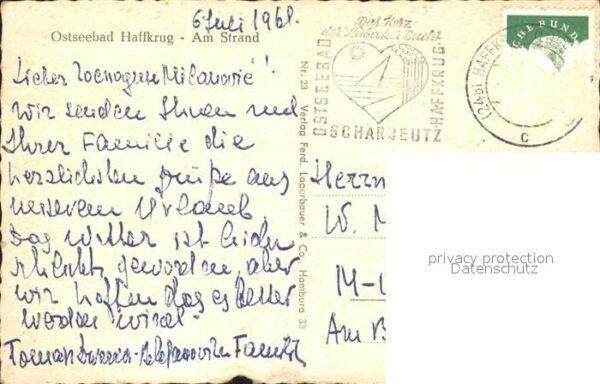 6 Juli 1961.
Ostseebad Haffkrug - Am Strand
Lieber Milanović!
wir senden Ihnen und
Ihrer Familie die
herzlichsten Grüße aus
unserem Urlaub.
Das Wetter ist leider
schlecht geworden, aber
wir hoffen das es besser
werden wird.
Familie
Nr. 23 Verlag Ferd. Lagerbauer & Co., Hamburg 33
Das Herz
der Lübecker Bucht
OSTSEEBAD
HAFFKRUG
SCHARBEUTZ
(24b) HAFFK
c
CHE BUND
Herrn
W. M
M-
Am B
privacy protection
Datenschutz